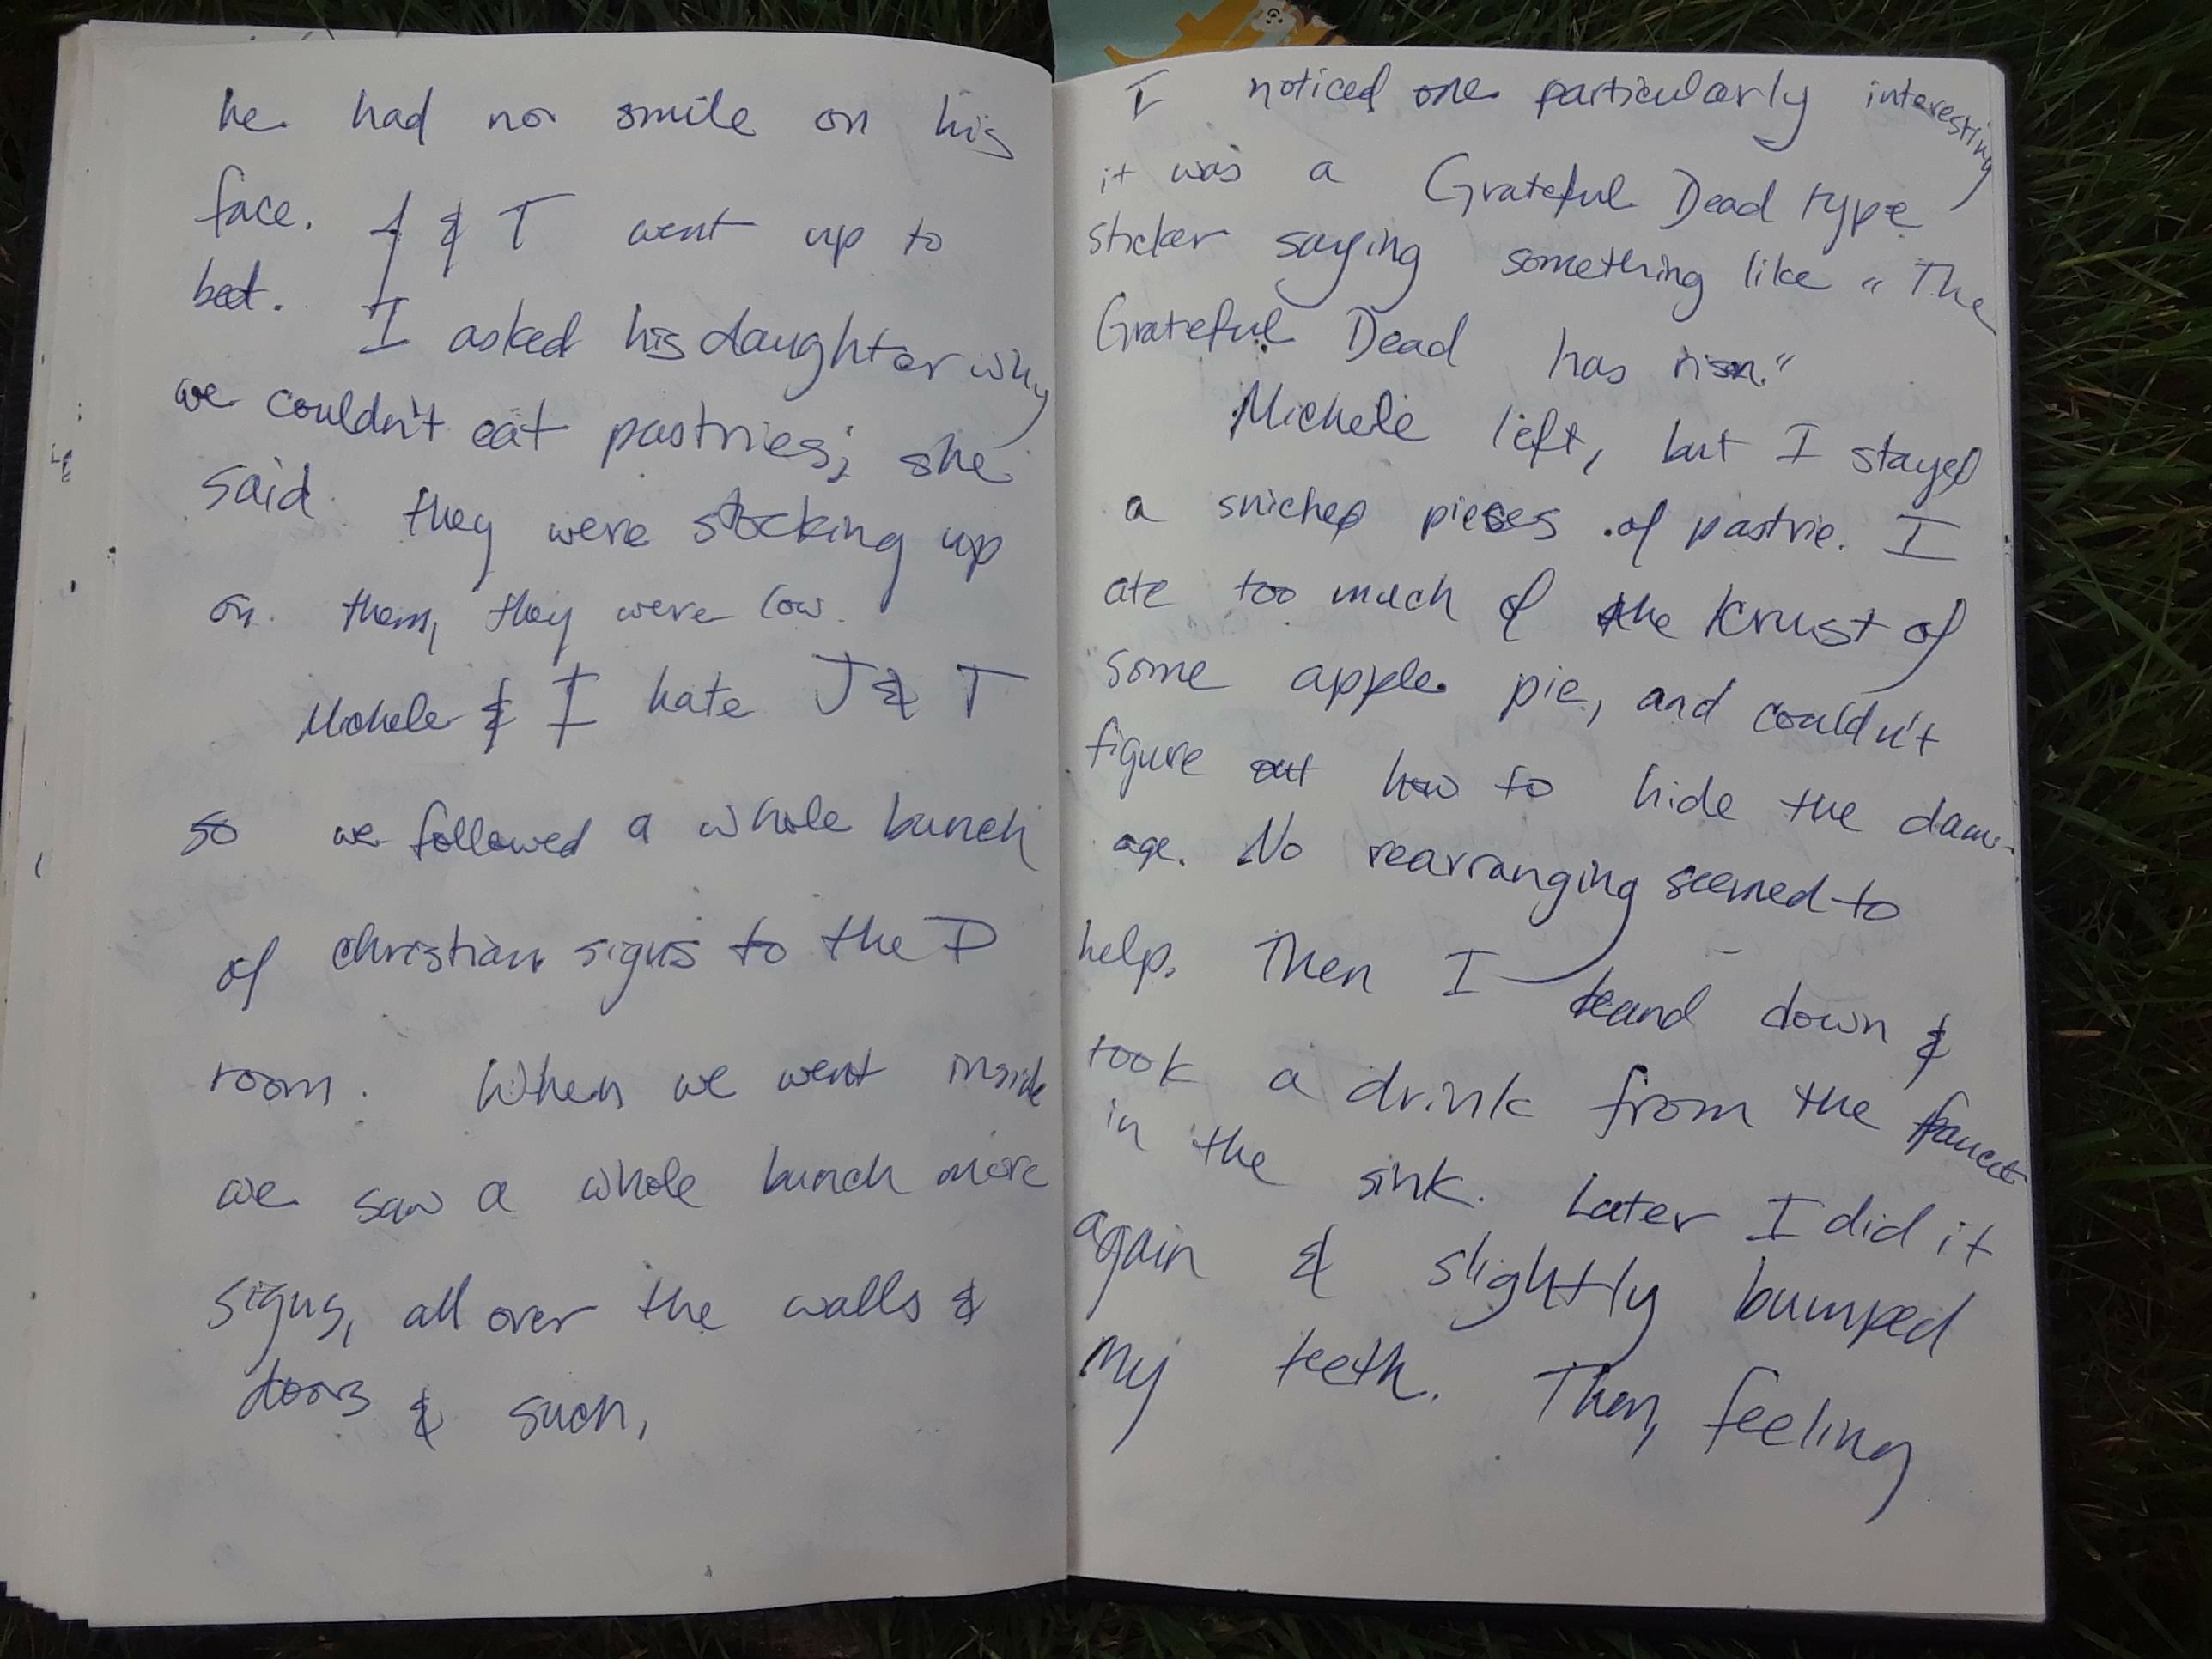 he had no smile on his
face. J & T went up to
bed.
I asked his daughter why
we couldn't eat pastries; she
said they were stocking up
on them, they were low.
Michele & I hate J & T
so we followed a whole bunch
of christian signs to the D
room. When we went inside
we saw a whole bunch more
signs, all over the walls &
doors & such,
I noticed one particularly interesting
it was a Grateful Dead type
sticker saying something like "The
Grateful Dead has risen."
Michele left, but I stayed
a sniched pieces of pastrie. I
ate too much of the krust of
some apple pie, and couldn't
figure out how to hide the dam-
age. No rearranging seemed to
help. Then I down &
took a drink from the faucet
in the sink. Later I did it
again & slightly bumped
my teeth. Then, feeling